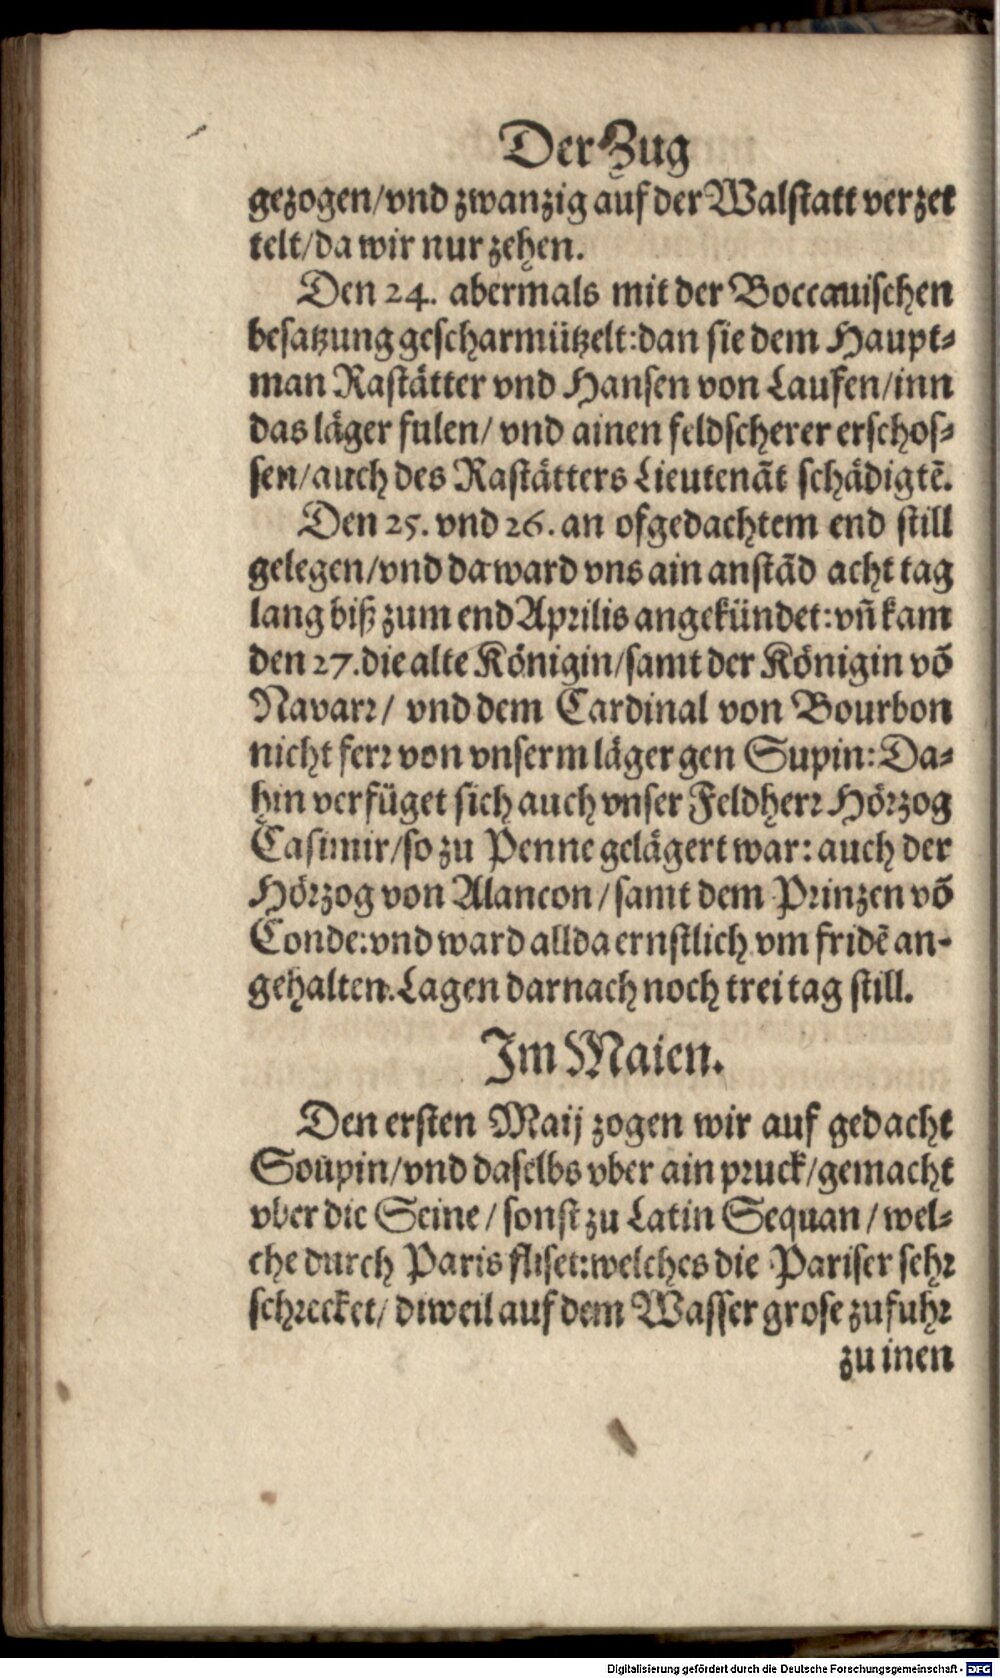 Der Zug
gezogen/vnd zwanzig auf der Walstatt verzet
telt/da wir nur zehen.
Den 24. abermals mit der Boccauischen
besatzung gescharmützelt:dan sie dem Haupt-
man Rastätter vnd Hansen von Laufen/inn
das läger fulen/ vnd ainen feldscherer erschos-
sen/auch des Rastätters Lieutenãt schädigtẽ.
Den 25. vnd 26. an ofgedachtem end still
gelegen/vnd da ward vns ain anstãd acht tag
lang biß zum end Aprilis angekündet:vñ kam
den 27. die alte Königin/samt der Königin võ
Navarr/ vnd dem Cardinal von Bourbon
nicht ferr von vnserm läger gen Supin: Da-
hin verfüget sich auch vnser Feldherr Hörzog
Casimir/so zu Penne gelägert war: auch der
Hörzog von Alancon/samt dem Prinzen võ
Conde:vnd ward allda ernstlich vm fridẽ an-
gehalten. Lagen darnach noch trei tag still.
Im Maien.
Den ersten Maij zogen wir auf gedacht
Soupin/vnd daselbs vber ain pruck/gemacht
vber die Seine/sonst zu Latin Sequan/wel-
che durch Paris fliset:welches die Pariser sehr
schrecket/diweil auf dem Wasser grose zufuhr
zu inen
Digitalisierung gefördert durch die Deutsche Forschungsgemeinschaft - DFG